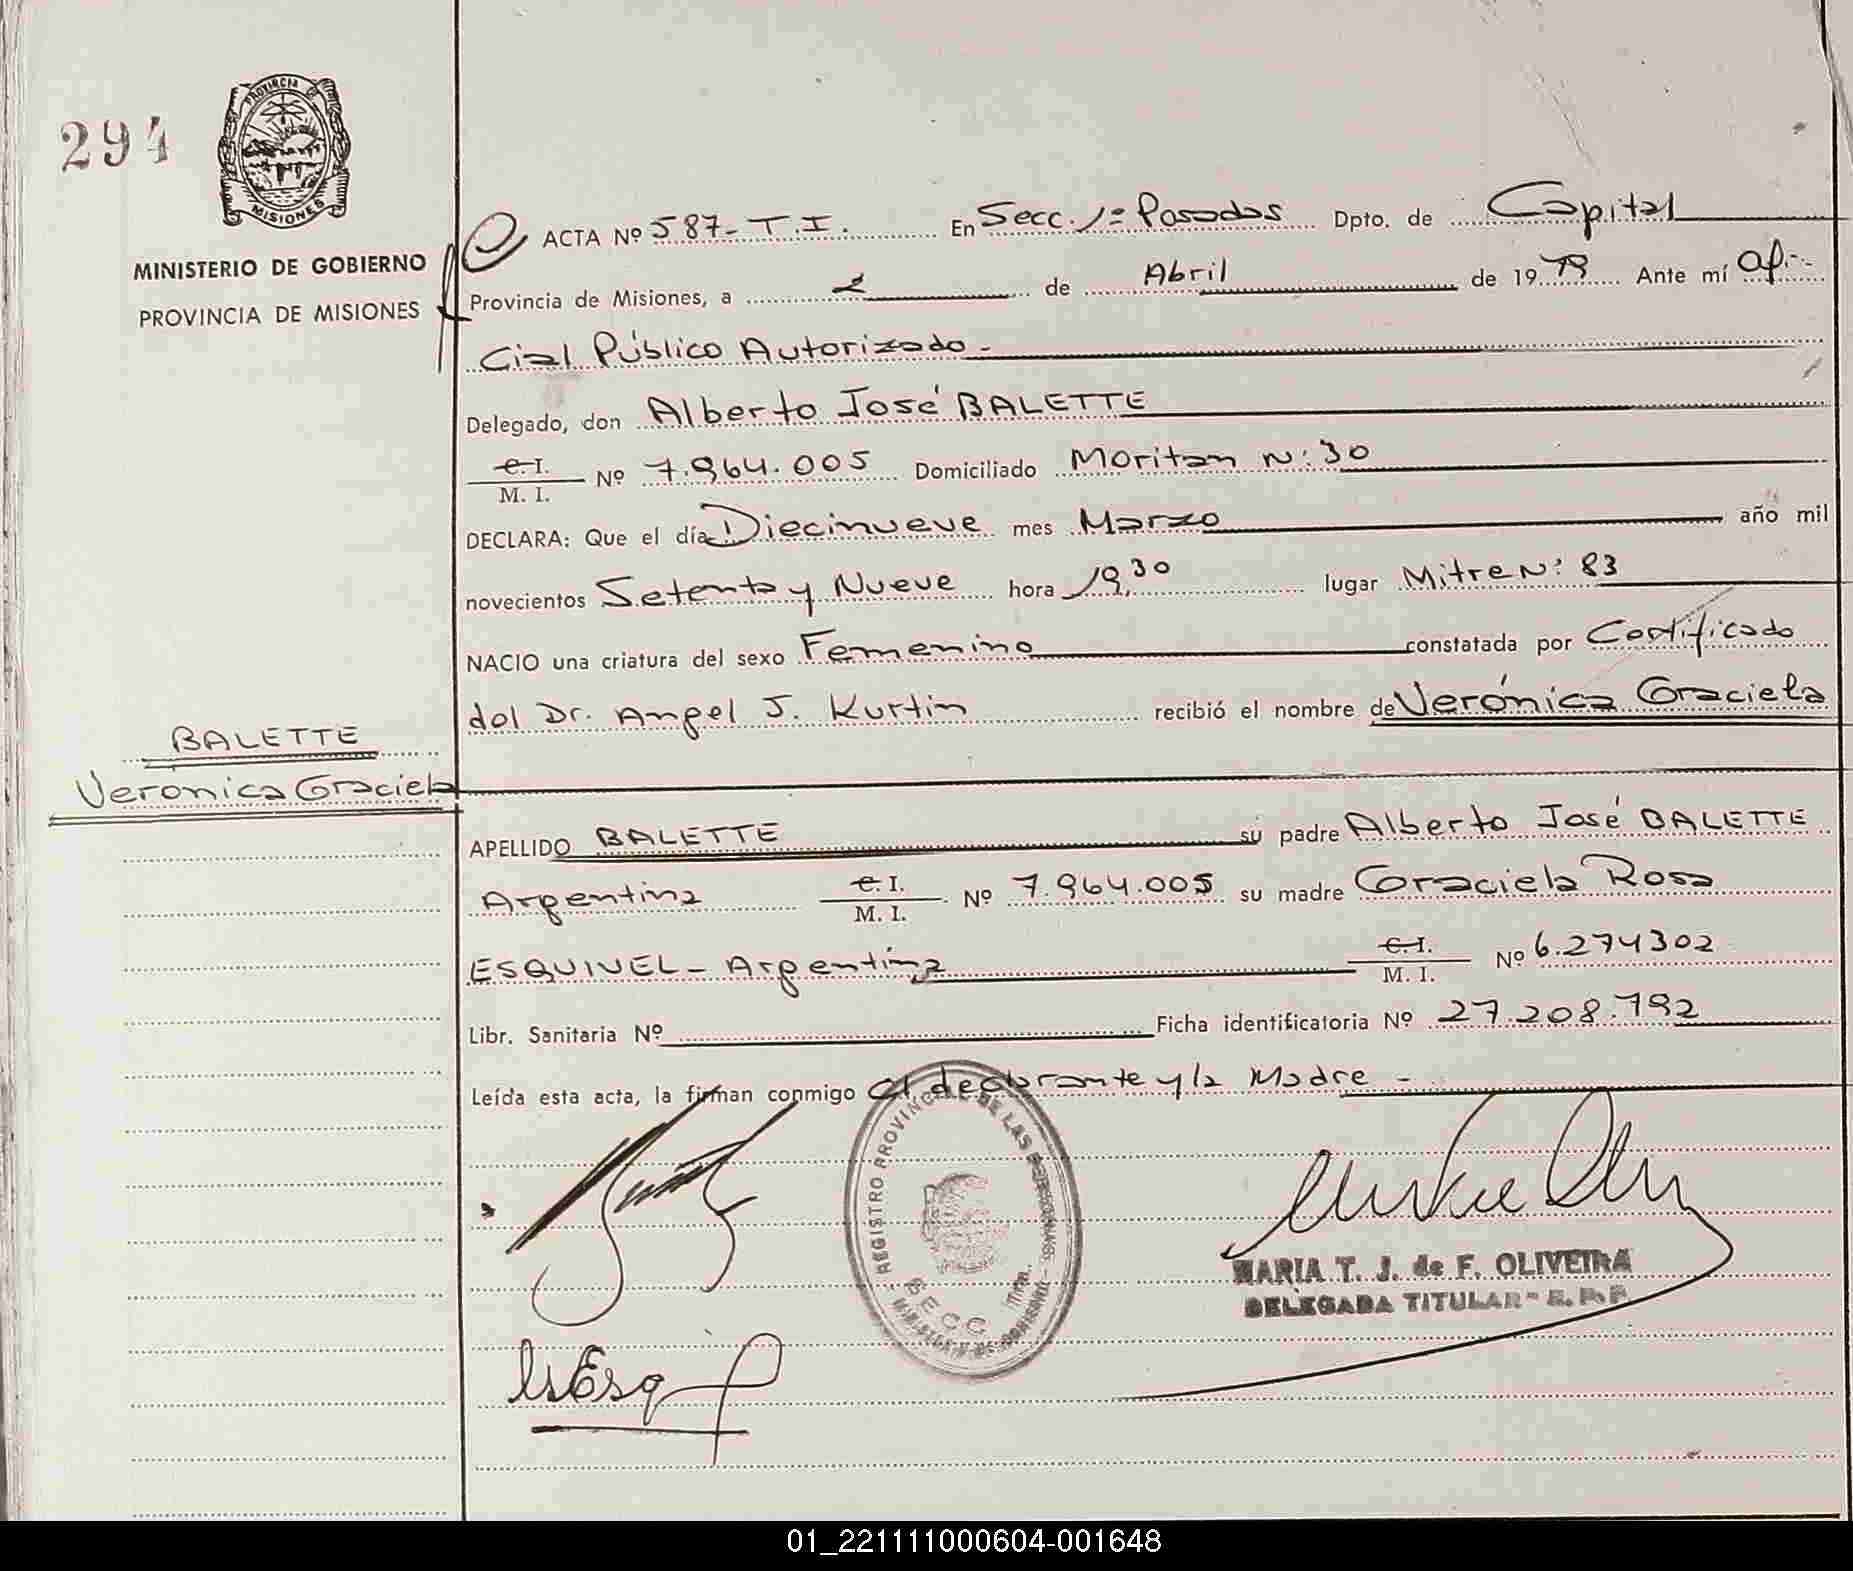 294
PROVINCIA
MISIONES
MINISTERIO DE GOBIERNO
PROVINCIA DE MISIONES
ACTA Nº 587- T.I. En Secc. 1º Posadas Dpto. de Capital
Provincia de Misiones, a 2 de Abril de 1979 Ante mí Ofi-
cial Público Autorizado -
Delegado, don Alberto José BALETTE
C. I. / M. I. Nº 7.964.005 Domiciliado Moritan N: 30
DECLARA: Que el día Diecinueve mes Marzo año mil
novecientos Setenta y Nueve hora 19,30 lugar Mitre N: 83
NACIO una criatura del sexo Femenino constatada por Certificado
del Dr. Angel J. Kurtin recibió el nombre de Verónica Graciela
BALETTE
Veronica Graciela
APELLIDO BALETTE su padre Alberto José BALETTE
Argentina C. I. / M. I. Nº 7.964.005 su madre Graciela Rosa
ESQUIVEL - Argentina C. I. / M. I. Nº 6.274302
Libr. Sanitaria Nº Ficha identificatoria Nº 27.208.792
Leída esta acta, la firman conmigo el declarante y la Madre -
REGISTRO PROVINCIAL DE LAS PERSONAS
SECC
MARIA T. J. de F. OLIVEIRA
DELEGADA TITULAR - R. P. P.
01_221111000604-001648